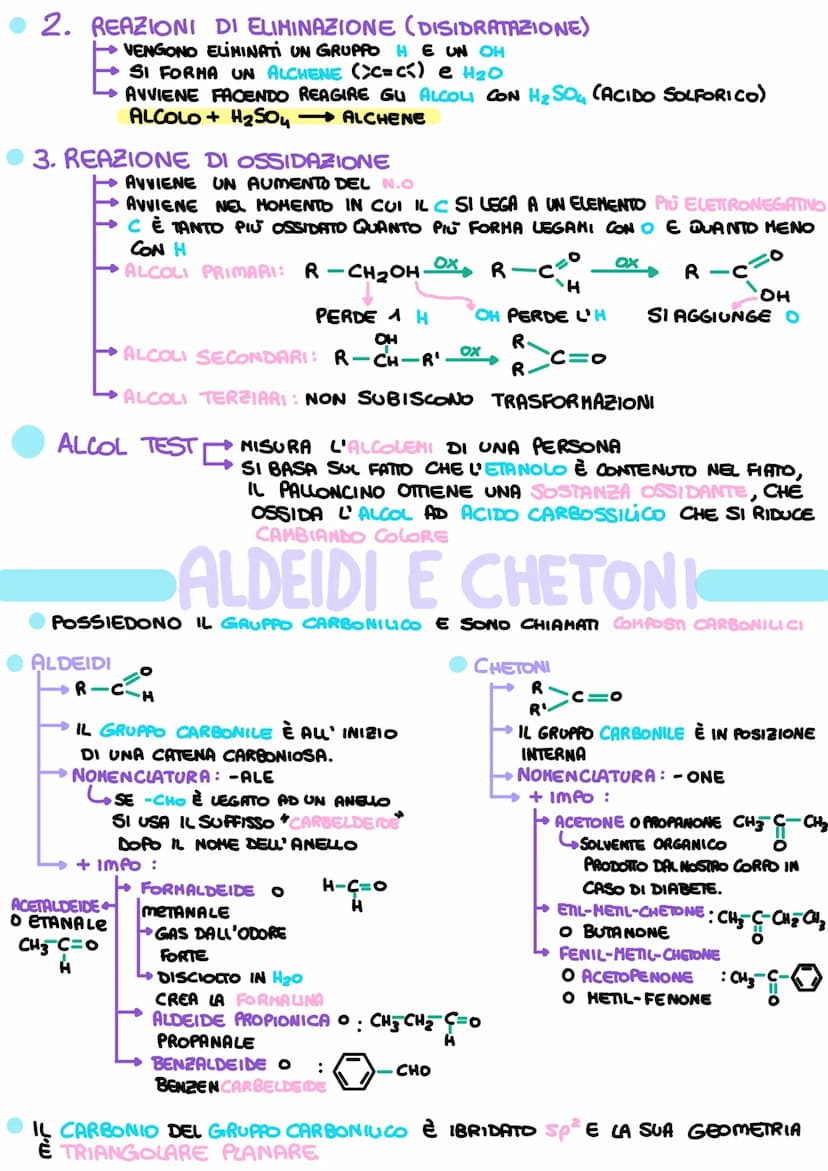 2. REAZIONI DI ELIMINAZIONE (DISIDRATAZIONE)
VENGONO ELIMINATI UN GRUPPO H E UN OH
SI FORMA UN ALCHENE (>C=C<) e H₂O
AVVIENE FACENDO REAGIRE GLI ALCOLI CON H₂SO₄ (ACIDO SOLFORICO)
ALCOLO + H₂SO₄ → ALCHENE
3. REAZIONE DI OSSIDAZIONE
AVVIENE UN AUMENTO DEL N.O
AVVIENE NEL MOMENTO IN CUI IL C SI LEGA A UN ELEMENTO PIÙ ELETTRONEGATIVO
C È TANTO PIÙ OSSIDATO QUANTO PIÙ FORMA LEGAMI CON O E QUANTO MENO
CON H
ALCOLI PRIMARI: R — CH₂OH —OX→ R — C =O H —OX→ R — C =O OH
PERDE 1 H OH PERDE L'H SI AGGIUNGE O
ALCOLI SECONDARI: R — CH — R' OH —OX→ R R C=O
ALCOLI TERZIARI: NON SUBISCONO TRASFORMAZIONI
ALCOL TEST → MISURA L'ALCOLEMI DI UNA PERSONA
SI BASA SUL FATTO CHE L'ETANOLO È CONTENUTO NEL FIATO,
IL PALLONCINO OTTIENE UNA SOSTANZA OSSIDANTE, CHE
OSSIDA L'ALCOL AD ACIDO CARBOSSILICO CHE SI RIDUCE
CAMBIANDO COLORE
ALDEIDI E CHETONI
POSSIEDONO IL GRUPPO CARBONILICO E SONO CHIAMATI COMPOSTI CARBONILICI
ALDEIDI
R — C =O H
IL GRUPPO CARBONILE È ALL'INIZIO
DI UNA CATENA CARBONIOSA.
NOMENCLATURA: -ALE
SE -CHO È LEGATO AD UN ANELLO
SI USA IL SUFFISSO "CARBELDEIDE"
DOPO IL NOME DELL'ANELLO
+ IMPO :
FORMALDEIDE O H-C=O
H
METANALE
GAS DALL'ODORE
FORTE
DISCIOLTO IN H₂O
CREA LA FORMALINA
ACETALDEIDE
O ETANALE
CH₃-C=O
H
ALDEIDE PROPIONICA O : CH₃CH₂-C=O
H
PROPANALE
BENZALDEIDE O : — CHO
BENZENCARBELDEIDE
CHETONI
R
R' C=O
IL GRUPPO CARBONILE È IN POSIZIONE
INTERNA
NOMENCLATURA: -ONE
+ IMPO :
ACETONE O PROPANONE CH₃-C-CH₃
O
SOLVENTE ORGANICO
PRODOTTO DAL NOSTRO CORPO IN
CASO DI DIABETE.
ETIL-METIL-CHETONE : CH₃-C-CH₂CH₃
O
O BUTANONE
FENIL-METIL-CHETONE
O ACETOPENONE : CH₃-C-
O
O METIL-FENONE
IL CARBONIO DEL GRUPPO CARBONILICO È IBRIDATO SP² E LA SUA GEOMETRIA
È TRIANGOLARE PLANARE